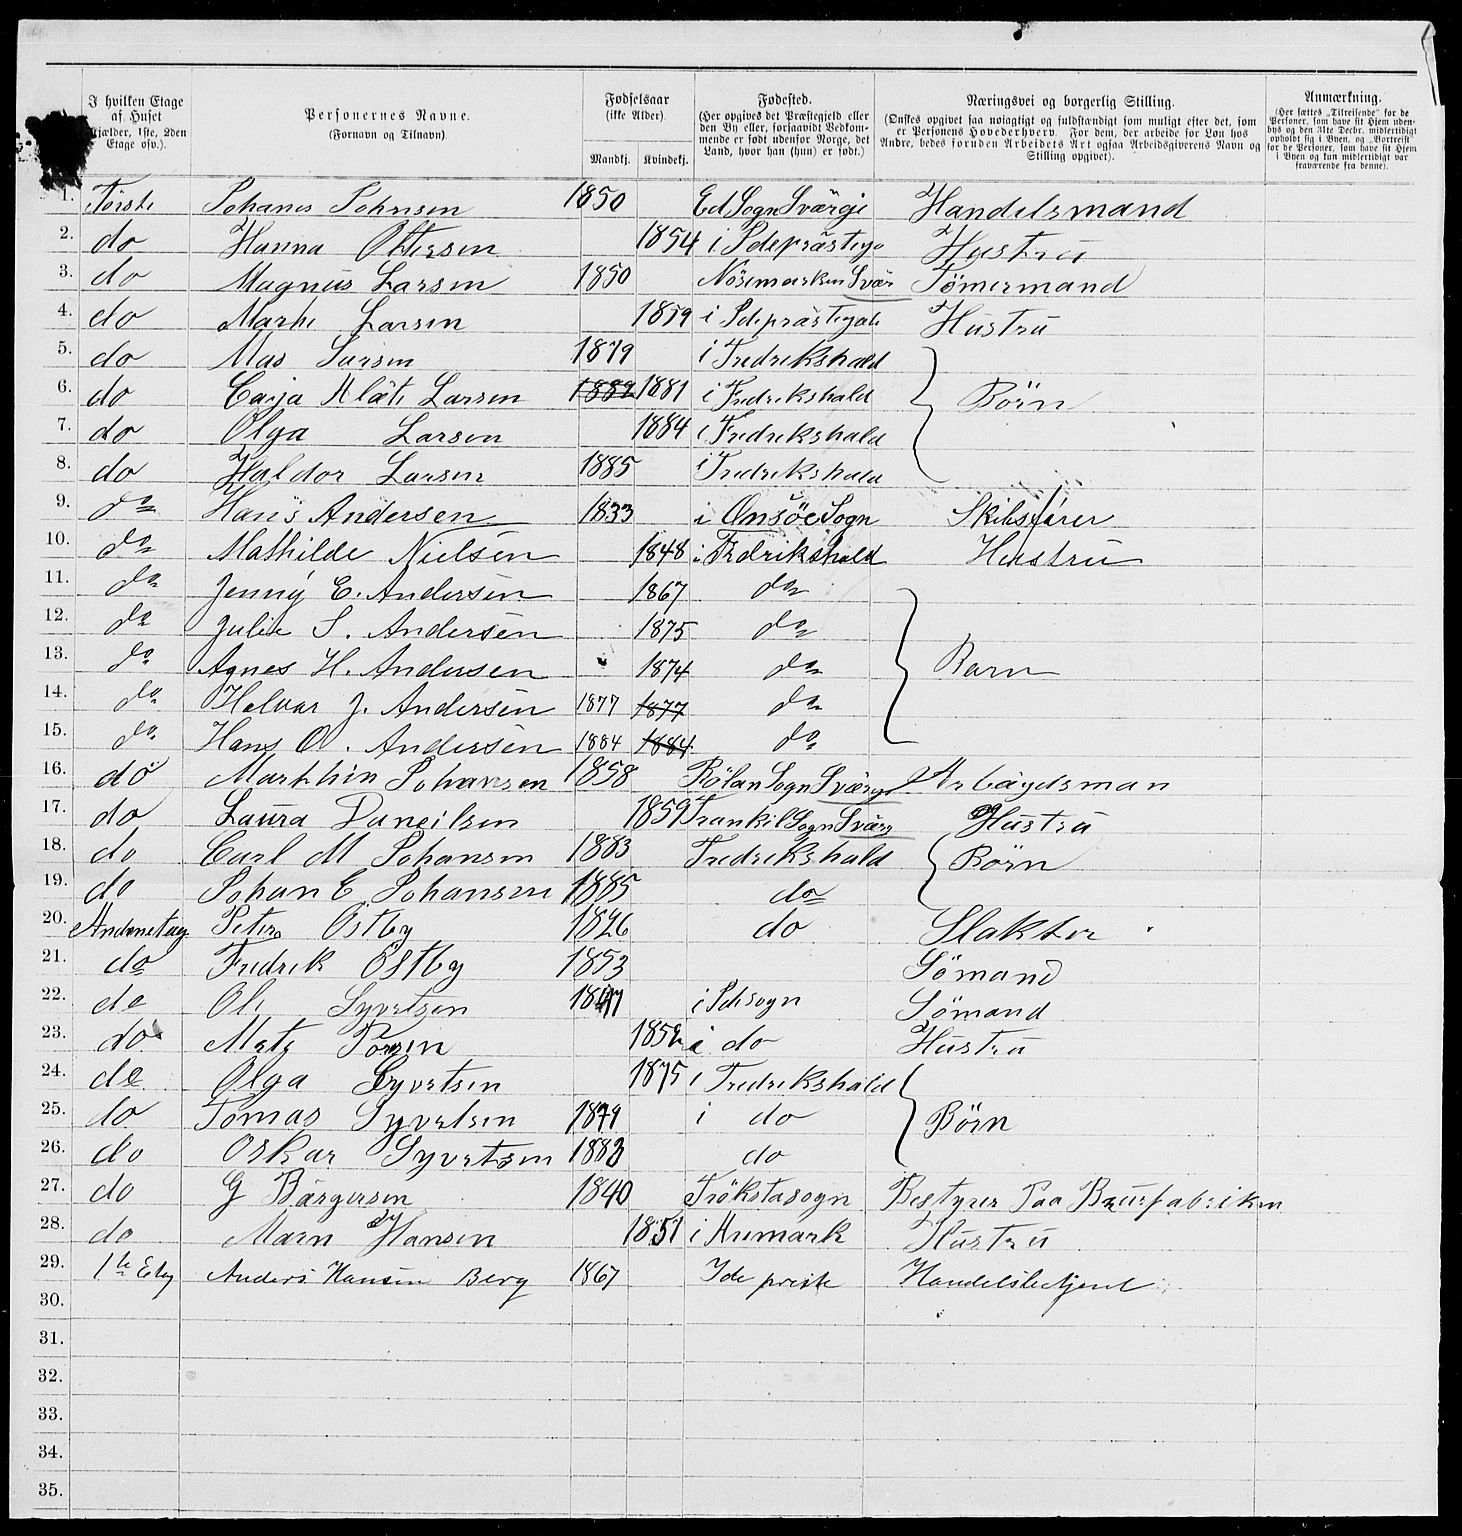 I hvilken Etage af Huset (Kjælder, 1ste, 2den Etage osv.). Personernes Navne. (Fornavn og Tilnavn). Fødselsaar (ikke Alder). Mandkj. Kvindekj. Fødested. (Her opgives det Præstegjeld eller den By eller, forsaavidt Vedkommende er født udenfor Norge, det Land, hvor han (hun) er født.) Næringsvei og borgerlig Stilling. (Ønskes opgivet saa nøiagtigt og fuldstændigt som muligt efter det, som er Personens Hovederhverv. For dem, der arbeide for Løn hos Andre, bedes foruden Arbeidets Art ogsaa Arbeidsgiverens Navn og Stilling opgivet). Anmærkning. (Her sættes „Tilreisende" for de Personer, som have sit Hjem udenbys og den 31te Decbr. midlertidigt opholdt sig i Byen, og „Bortreist" for de Personer, som have sit Hjem i Byen og kun midlertidigt var fraværende fra denne).
1. Förste Johanes Johnsen 1850 Ed Sogn Svärge Handelsmand
2. do Hanna Ottersen 1854 i Ideprästego Hustru
3. do Magnus Larsen 1850 Nösemarken Svär Tömermand
4. do Marte Larsen 1859 i Ideprästegale Hustru
5. do Mas Larsen 1879 i Fredrikshald
6. do Carja Mläte Larsen 1882 1881 i Fredrikshald Börn
7. do Olga Larsen 1884 i Fredrikshald
8. do Haldor Larsen 1885 i Fredrikshald
9. do Hans Andersen 1833 i Onsöe Sogn Skibsfører
10. do Mathilde Nielsen 1848 i Fredrikshald Hustru
11. do Jenny E. Andersen 1867 do
12. do Julie S. Andersen 1875 do
13. do Agnes H. Andersen 1874 do Barn
14. do Helvar J. Andersen 1877 1877 do
15. do Hans O. Andersen 1884 1884 do
16. do Marthin Johansen 1858 Rölan Sogn Sværge Arbäydsman
17. do Laura Daneilsen 1859 Frankil Sogn Sværg Hustru
18. do Carl M Johansen 1883 Fredrikshald Börn
19. do Johan E Johansen 1885 do
20. Andenetag Peter Ostby 1826 do Slakter
21. do Fredrik Ostby 1853 Sömand
22. do Ole Syvertsen 1847 i Idesogn Sömand
23. do Mate 1852 i do Hustru
24. do Olga Syvertsen 1875 i Fredrikshald
25. do Tomas Syvertsen 1879 i do Börn
26. do Oskar Syvertsen 1883 do
27. do G Bärgersen 1840 Trökstasogn Bestyrer Paa
28. do Marn Hansen 1851 i Aremark Hustru
29. 1te Etg Anders Hansen Berg 1867 Ide prest Handelsbetjent
30.
31.
32.
33.
34.
35.